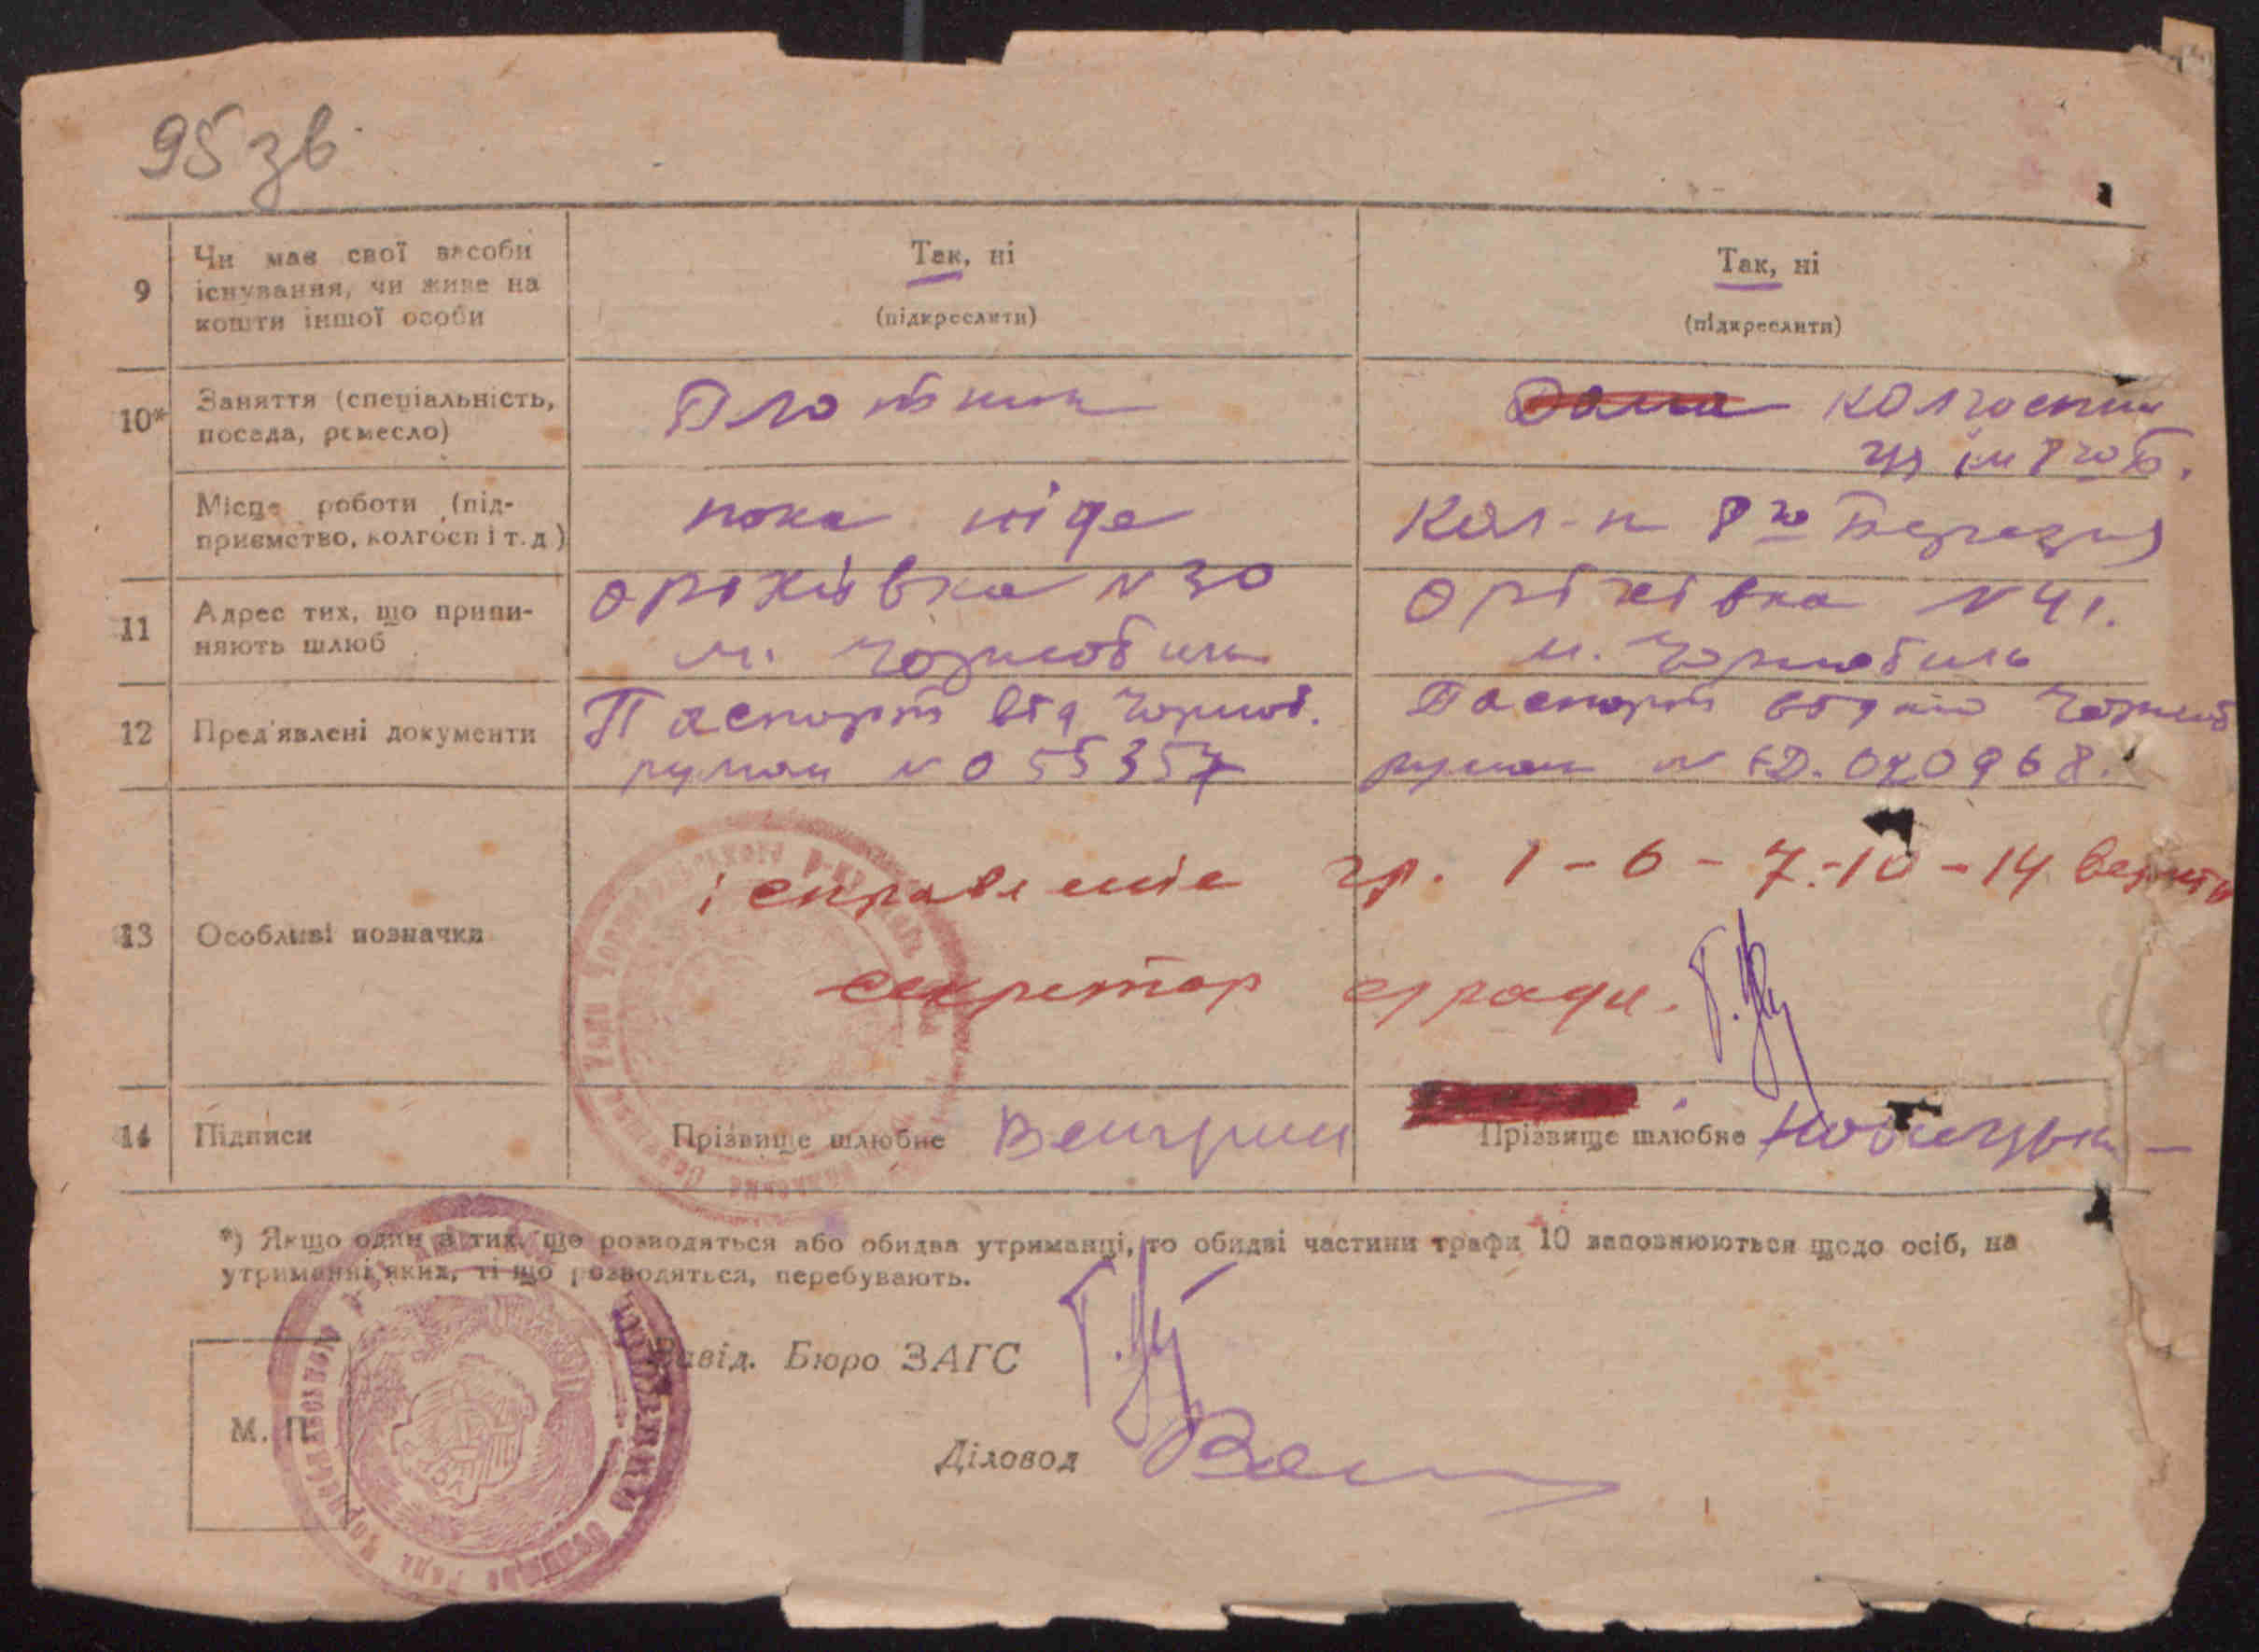 95 зв
9
Чи має свої засоби
існування, чи живе на
кошти іншої особи
Так, ні
(підкреслити)
Так, ні
(підкреслити)
10*
Заняття (спеціальність,
посада, ремесло)
Плотник
Дома колгоспни
ця ім 8го Б.
Місце роботи (під-
приємство, колгосп і т. д.)
пока ніде
Кол-п 8го Березня
11
Адрес тих, що припи-
няють шлюб
Оріхівка N 30
м. Чорнобиль
Оріхівка N 41.
м. Чорнобиль
12
Пред'явлені документи
Паспорт від Чорноб.
N 055357
Паспорт Чорноб
13
Особливі позначки
ісправленіе гр. 1 - 6 - 7 - 10 - 14
секретар ради.
14
Підписи
Прізвище шлюбне
Прізвище шлюбне
*) Якщо один з тих, що розводяться або обидва утриманці, то обидві частини графи 10 заповнюються щодо осіб, на
утриманні яких, ті що розводяться, перебувають.
Завід. Бюро ЗАГС
М. П.
Діловод